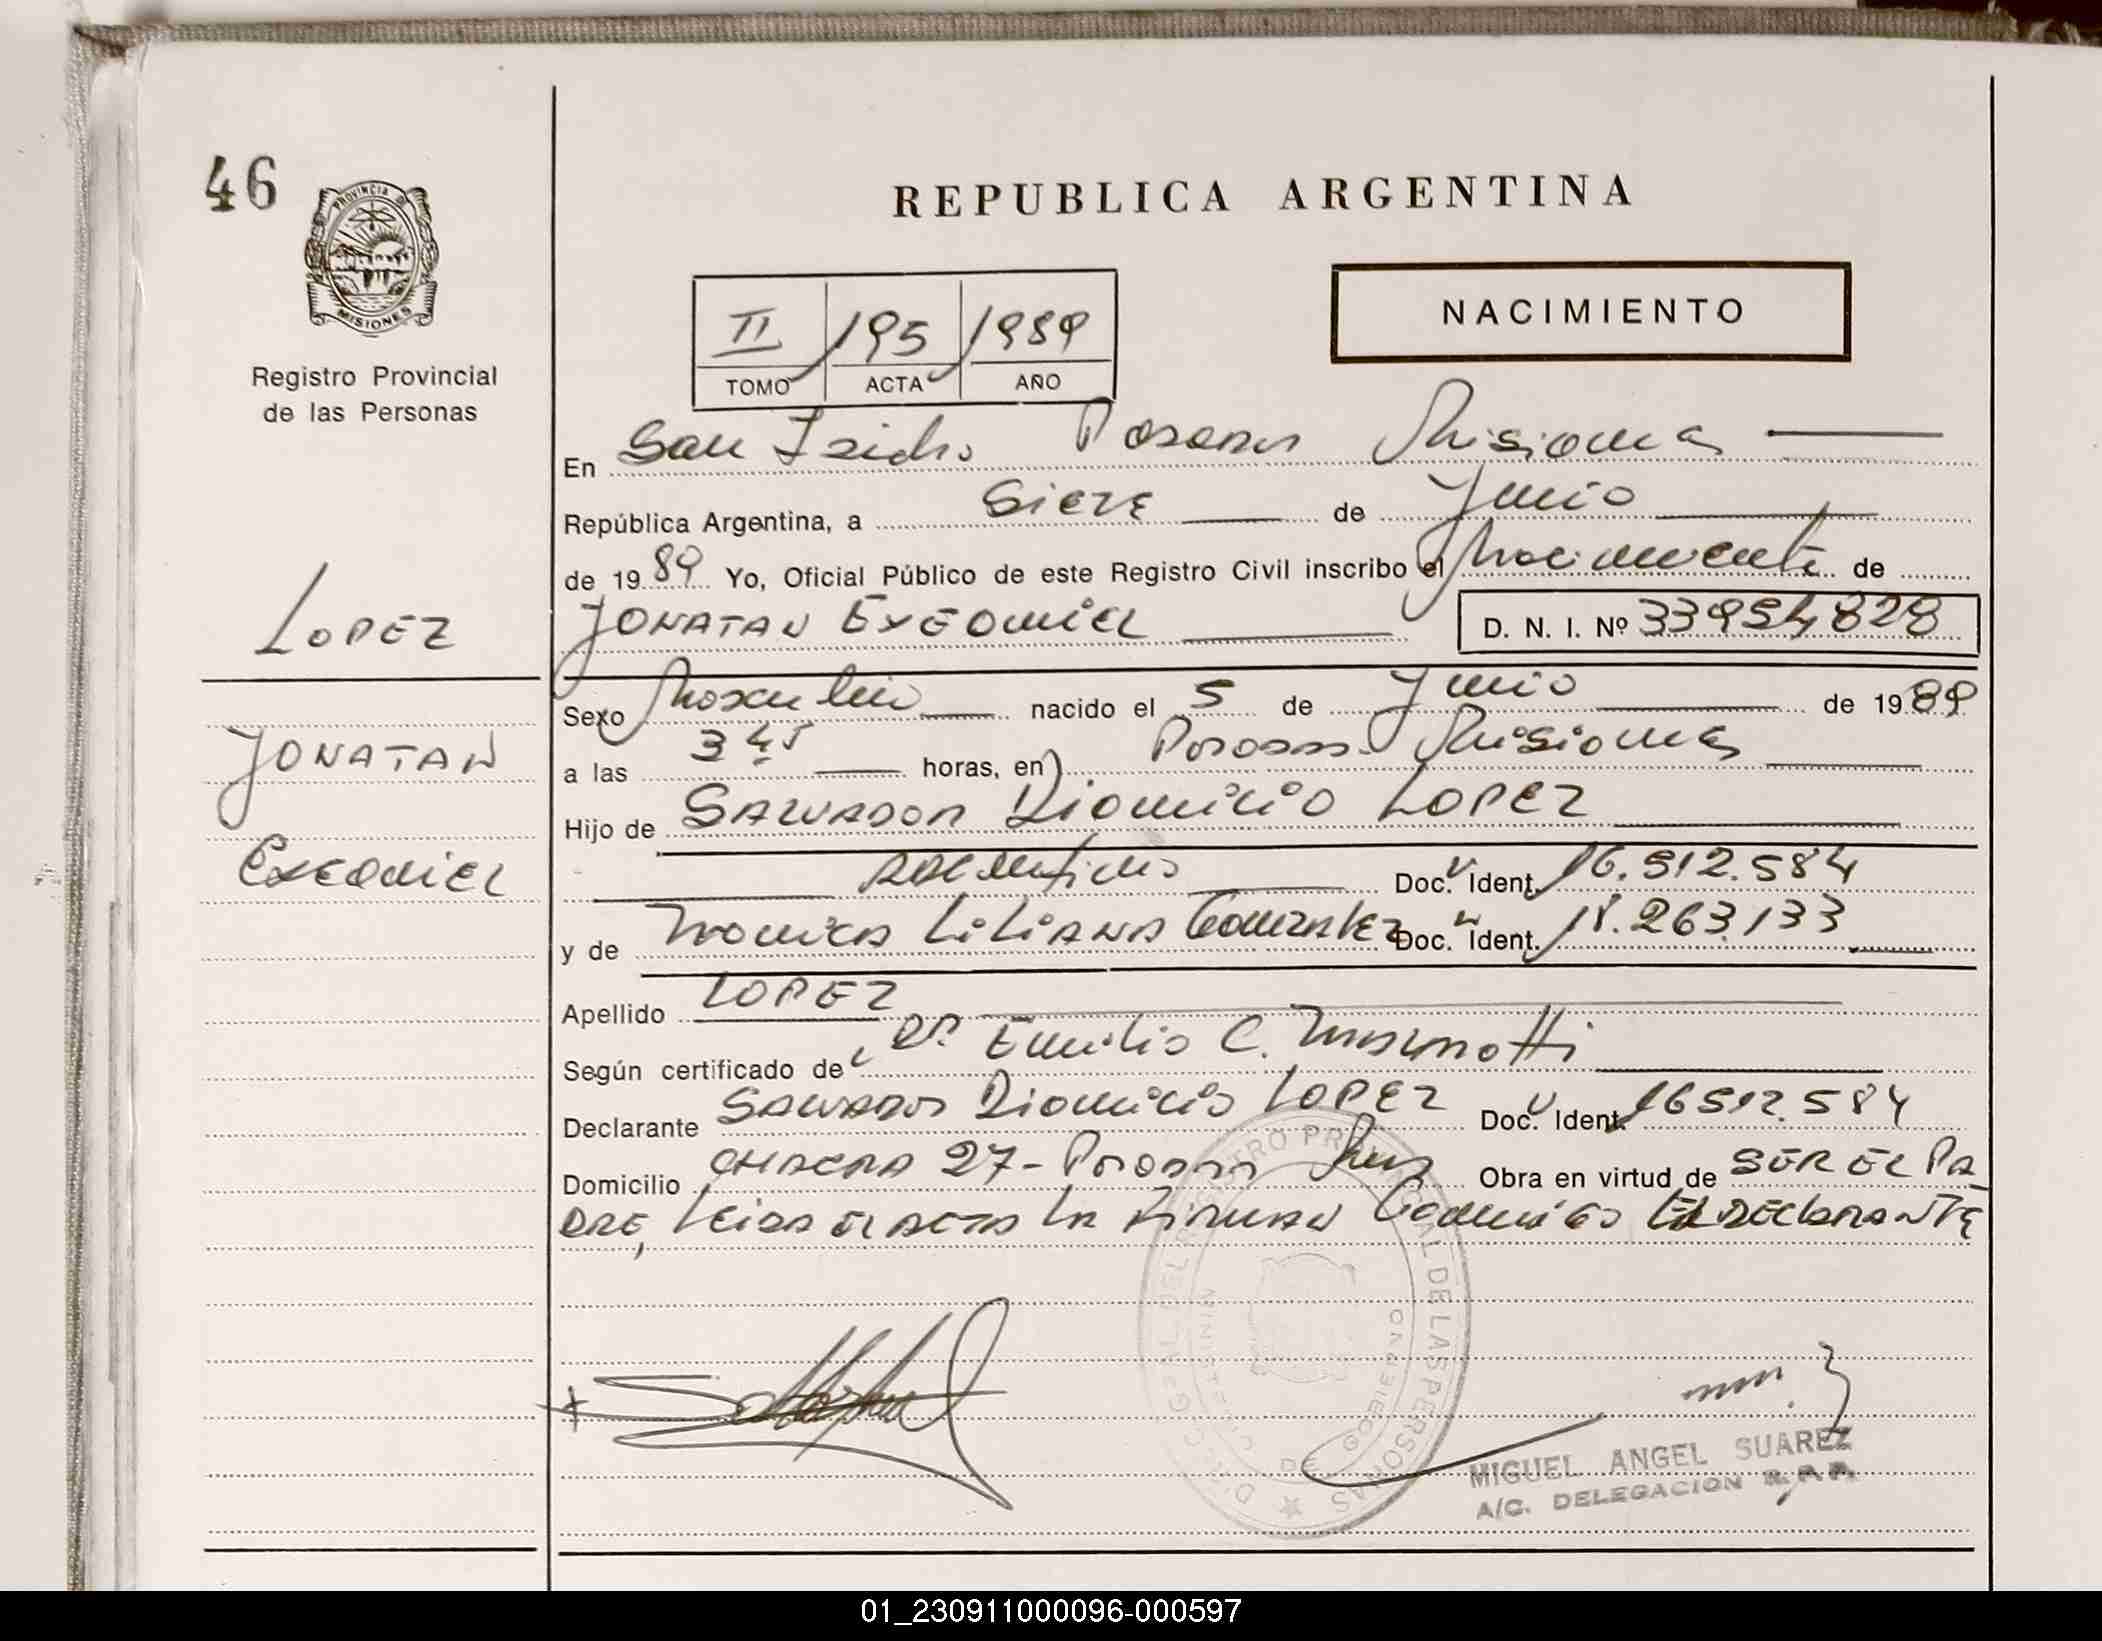 46
PROVINCIA D
MISIONES
Registro Provincial
de las Personas
REPUBLICA ARGENTINA
NACIMIENTO
II 195 1989
TOMO ACTA AÑO
En San Isidro Posadas Misiones
República Argentina, a Siete de Junio
de 1989 Yo, Oficial Público de este Registro Civil inscribo el Nacimiento de
LOPEZ
JONATAN EXEQUIEL D. N. I. Nº 33954828
Sexo Masculino nacido el 5 de Junio de 1989
JONATAN
a las 3 45 horas, en Posadas Misiones
Hijo de SALVADOR DIONICIO LOPEZ
EXEQUIEL
Argentino Doc. Ident. 16.512.584
y de MONICA LILIANA Gonzalez Doc. Ident. 18.263.133
Apellido LOPEZ
Según certificado de Dr. Emilio C.
Declarante SALVADOR DIONICIO LOPEZ Doc. Ident. 16512.584
Domicilio CHACRA 27 - Posadas Mnes Obra en virtud de SER EL PA
DRE, Leida el acta la firman Conmigo El DEClARANTE
DIR. GRAL. DEL REGISTRO PROVINCIAL DE LAS PERSONAS
MINISTERIO DE GOBIERNO
MIGUEL ANGEL SUAREZ
A/C. DELEGACION
01_230911000096-000597